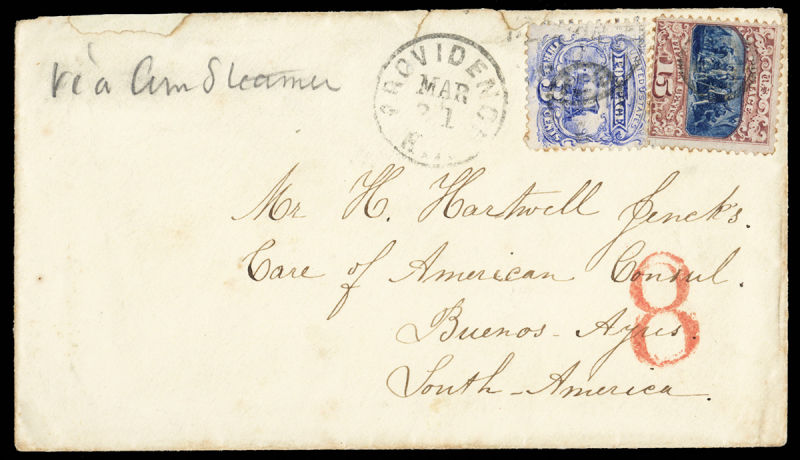 via Am Steamer
PROVIDENCE
MAR
21
R.I.
Mr H. Hartwell Jencks.
Care of American Consul.
Buenos-Ayres.
South-America.
8
POSTAGE
15